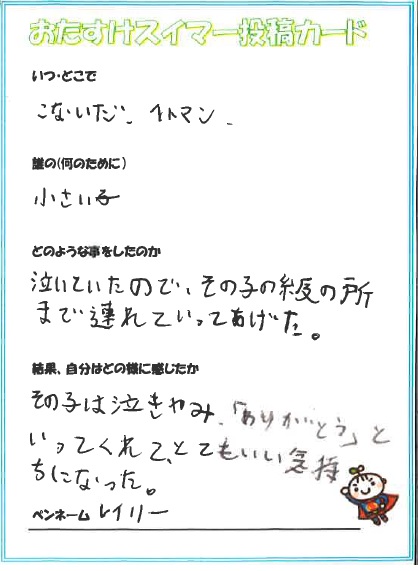 おたすけスイマー投稿カード
いつ・どこで
こないだ、イトマン、
誰の(何のために)
小さい子
どのような事をしたのか
泣いていたので、その子の級の所
まで連れていってあげた。
結果、自分はどの様に感じたか
その子は泣きやみ、「ありがとう」と
いってくれて、とてもいい気持
ちになった。
ペンネーム レイリー